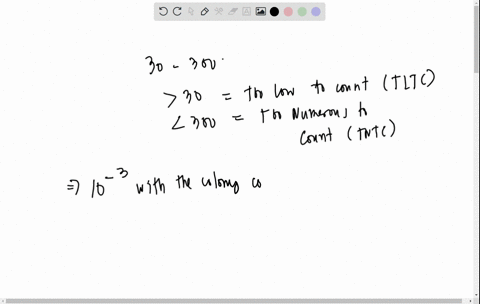 30 - 300.
> 30 = Too low to count (TLTC)
< 300 = Too Numerous to
Count (TNTC)
⇒ 10⁻³ with the colony co